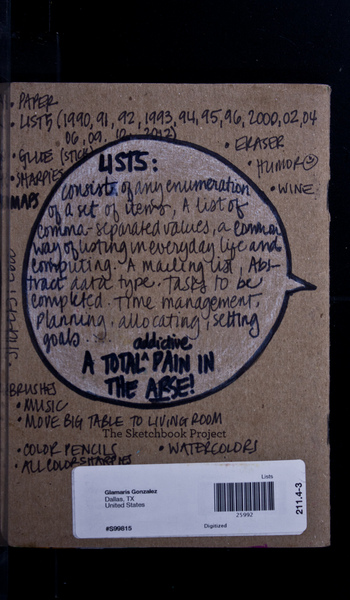 • PAPER
• LISTS (1990, 91, 92, 1993, 94, 95, 96, 2000, 02, 04
06, 09, 10, 2012)
• GLUE (STICK)
• ERASER
• SHARPIES
• HUMOR
MAPS
• WINE
LISTS:
consists of any enumeration
of a set of items, A list of
comma-separated values, a common
way of listing in everyday life and
computing. A mailing list, Abs-
tract data type. Tasks to be
completed. Time management,
Planning, allocating, setting
goals...
addictive
A TOTAL ^ PAIN IN
THE ARSE!
BRUSHES
• MUSIC
• MOVE BIG TABLE TO LIVING ROOM
The Sketchbook Project
• COLOR PENCILS • WATERCOLORS
• ALL COLOR SHARPIES
Lists
Glamaris Gonzalez
Dallas, TX
United States
25992
#S99815
Digitized
211.4-3